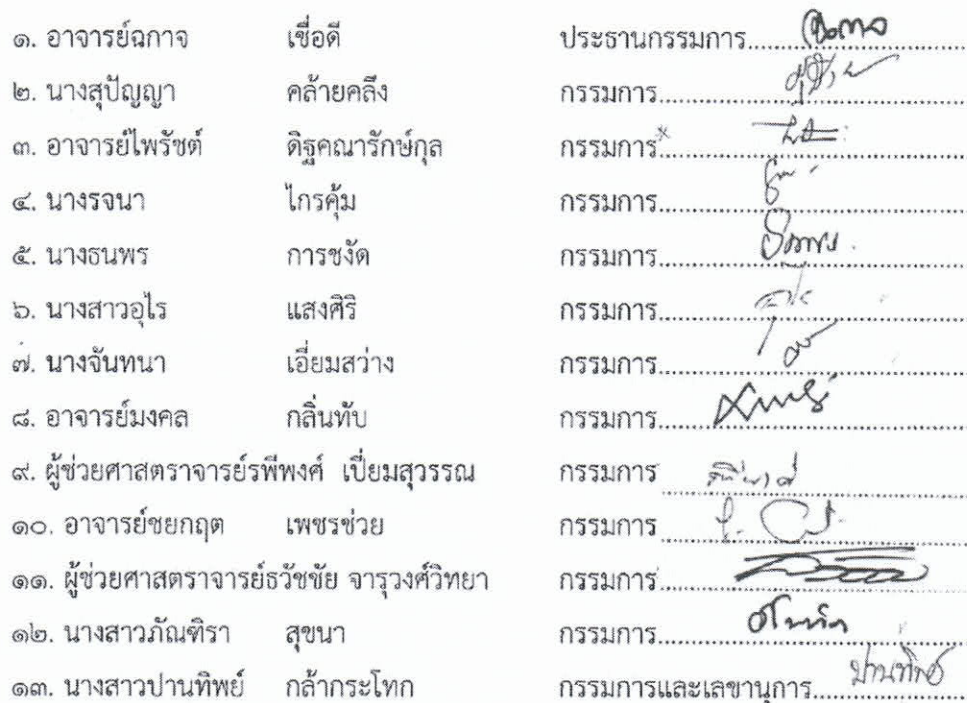 ๑. อาจารย์ฉกาจ เชื่อดี ประธานกรรมการ
๒. นางสุปัญญา คล้ายคลึง กรรมการ
๓. อาจารย์ไพรัชต์ ดิฐคณารักษ์กุล กรรมการ
๔. นางรจนา ไกรคุ้ม กรรมการ
๕. นางธนพร การชงัด กรรมการ
๖. นางสาวอุไร แสงศิริ กรรมการ
๗. นางจันทนา เอี่ยมสว่าง กรรมการ
๘. อาจารย์มงคล กลิ่นทับ กรรมการ
๙. ผู้ช่วยศาสตราจารย์รพีพงศ์ เปี่ยมสุวรรณ กรรมการ
๑๐. อาจารย์ชยกฤต เพชรช่วย กรรมการ
๑๑. ผู้ช่วยศาสตราจารย์ธวัชชัย จารุวงศ์วิทยา กรรมการ
๑๒. นางสาวภัณฑิรา สุขนา กรรมการ
๑๓. นางสาวปานทิพย์ กล้ากระโทก กรรมการและเลขานุการ ปานทิพย์